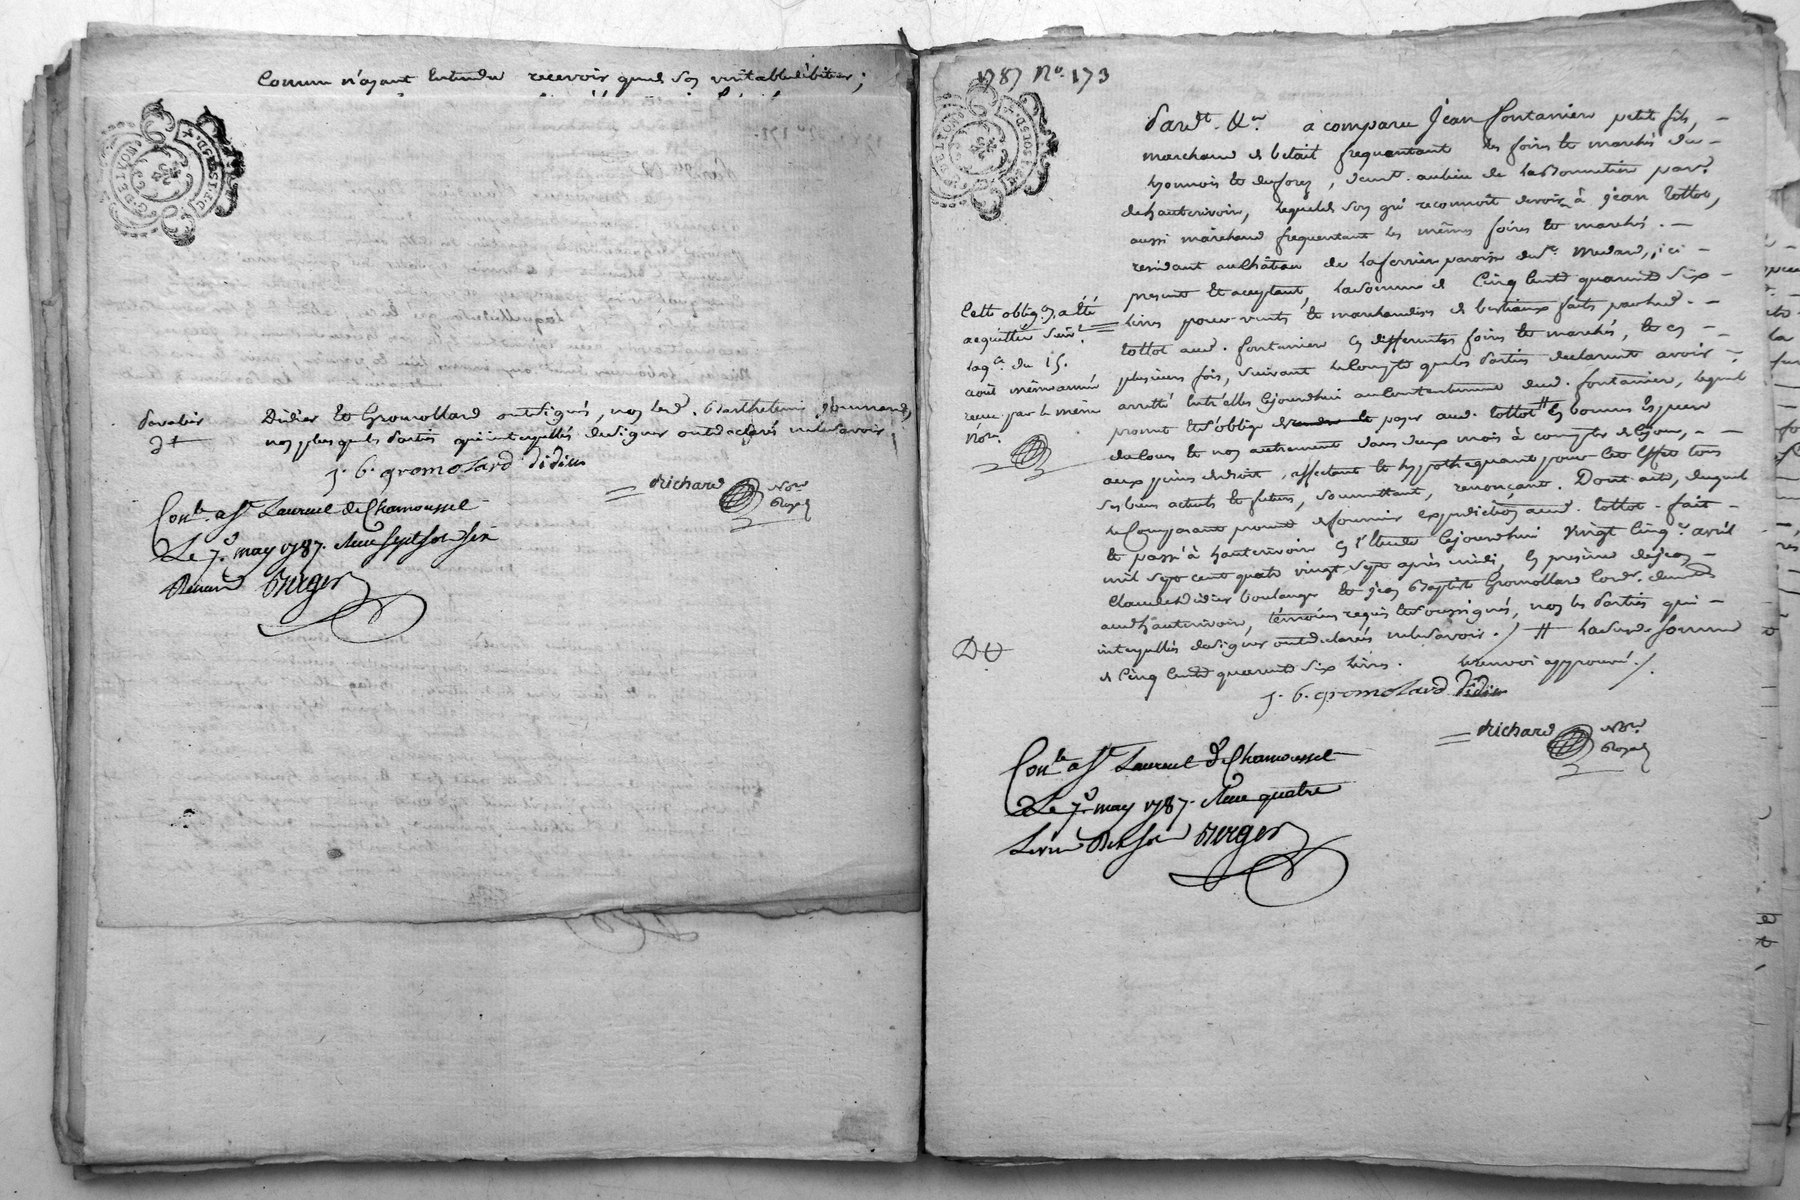 Comme n'ayant entendu recevoir que de son veritable débiteur;
G. D. E LYON
2. SOLS. D.
pavalier
Didier et Gromollard ont signés, non led. Barthelemi
non plus que les parties qui interpellés de signer ont declarés ne le savoir
J. b. gromolard didier
richard Nore Royal
Conlé. a St Laurent de Chamousset
Le 7. may 1787. Reçu sept sols six
deniers Berger
1787 No. 173
Pardt. &a a comparu Jean fontanier petit fils,
marchand de betail frequentant les foires et marchés du
Lyonnois et du forez, demt. au lieu de la bonnetiere par.
de hauterivoire, lequel de son gré reconnoit devoir à jean tottot,
aussi marchand frequentant les mêmes foires et marchés.
residant au château de laferriere paroisse de St. Medard, ici
present et acceptant, la somme de Cinq cents quarante six
livres pour vente et marchandises de bestiaux faits par led.
tottot aud. fontanier en differentes foires et marchés, et en
plusieurs fois, suivant le compte que les parties declarent avoir
arretté entr'elles cejourdhui au contentement dud. fontanier, lequel
promet et s'oblige de rendre et payer aud. tottot # en bonnes especes
de cours et non autrement dans deux mois à compter de ce jour,
aux peines de droit, affectant et hypothequant pour cet effet tous
ses biens actuels et futurs, soumettant, renonçant. Dont acte, duquel
le comparant promet de fournir expedition aud. tottot. fait
et passé à hauterivoire en l'etude cejourdhui vingt cinq avril
mil sept cent quatre vingt sept après midi, en presence de sieurs
Claude Didier boulanger et jean Baptiste Gromollard cordr. demts
aud hauterivoire, témoins requis et soussignés, non les parties qui
interpellés de signer ont declarés ne le savoir. / # ladite somme
de Cinq cents quarante six livres. le renvoi approuvé. /.
Cette oblig.on a été
acquittée suivt.
laqce. du 15.
août même année
reçue par le même
Nore.
J. b. gromolard didier
richard Nore Royal
Conlé à St Laurent de Chamousset
Le 7. may 1787. Reçu quatre
Livres dix sols Berger